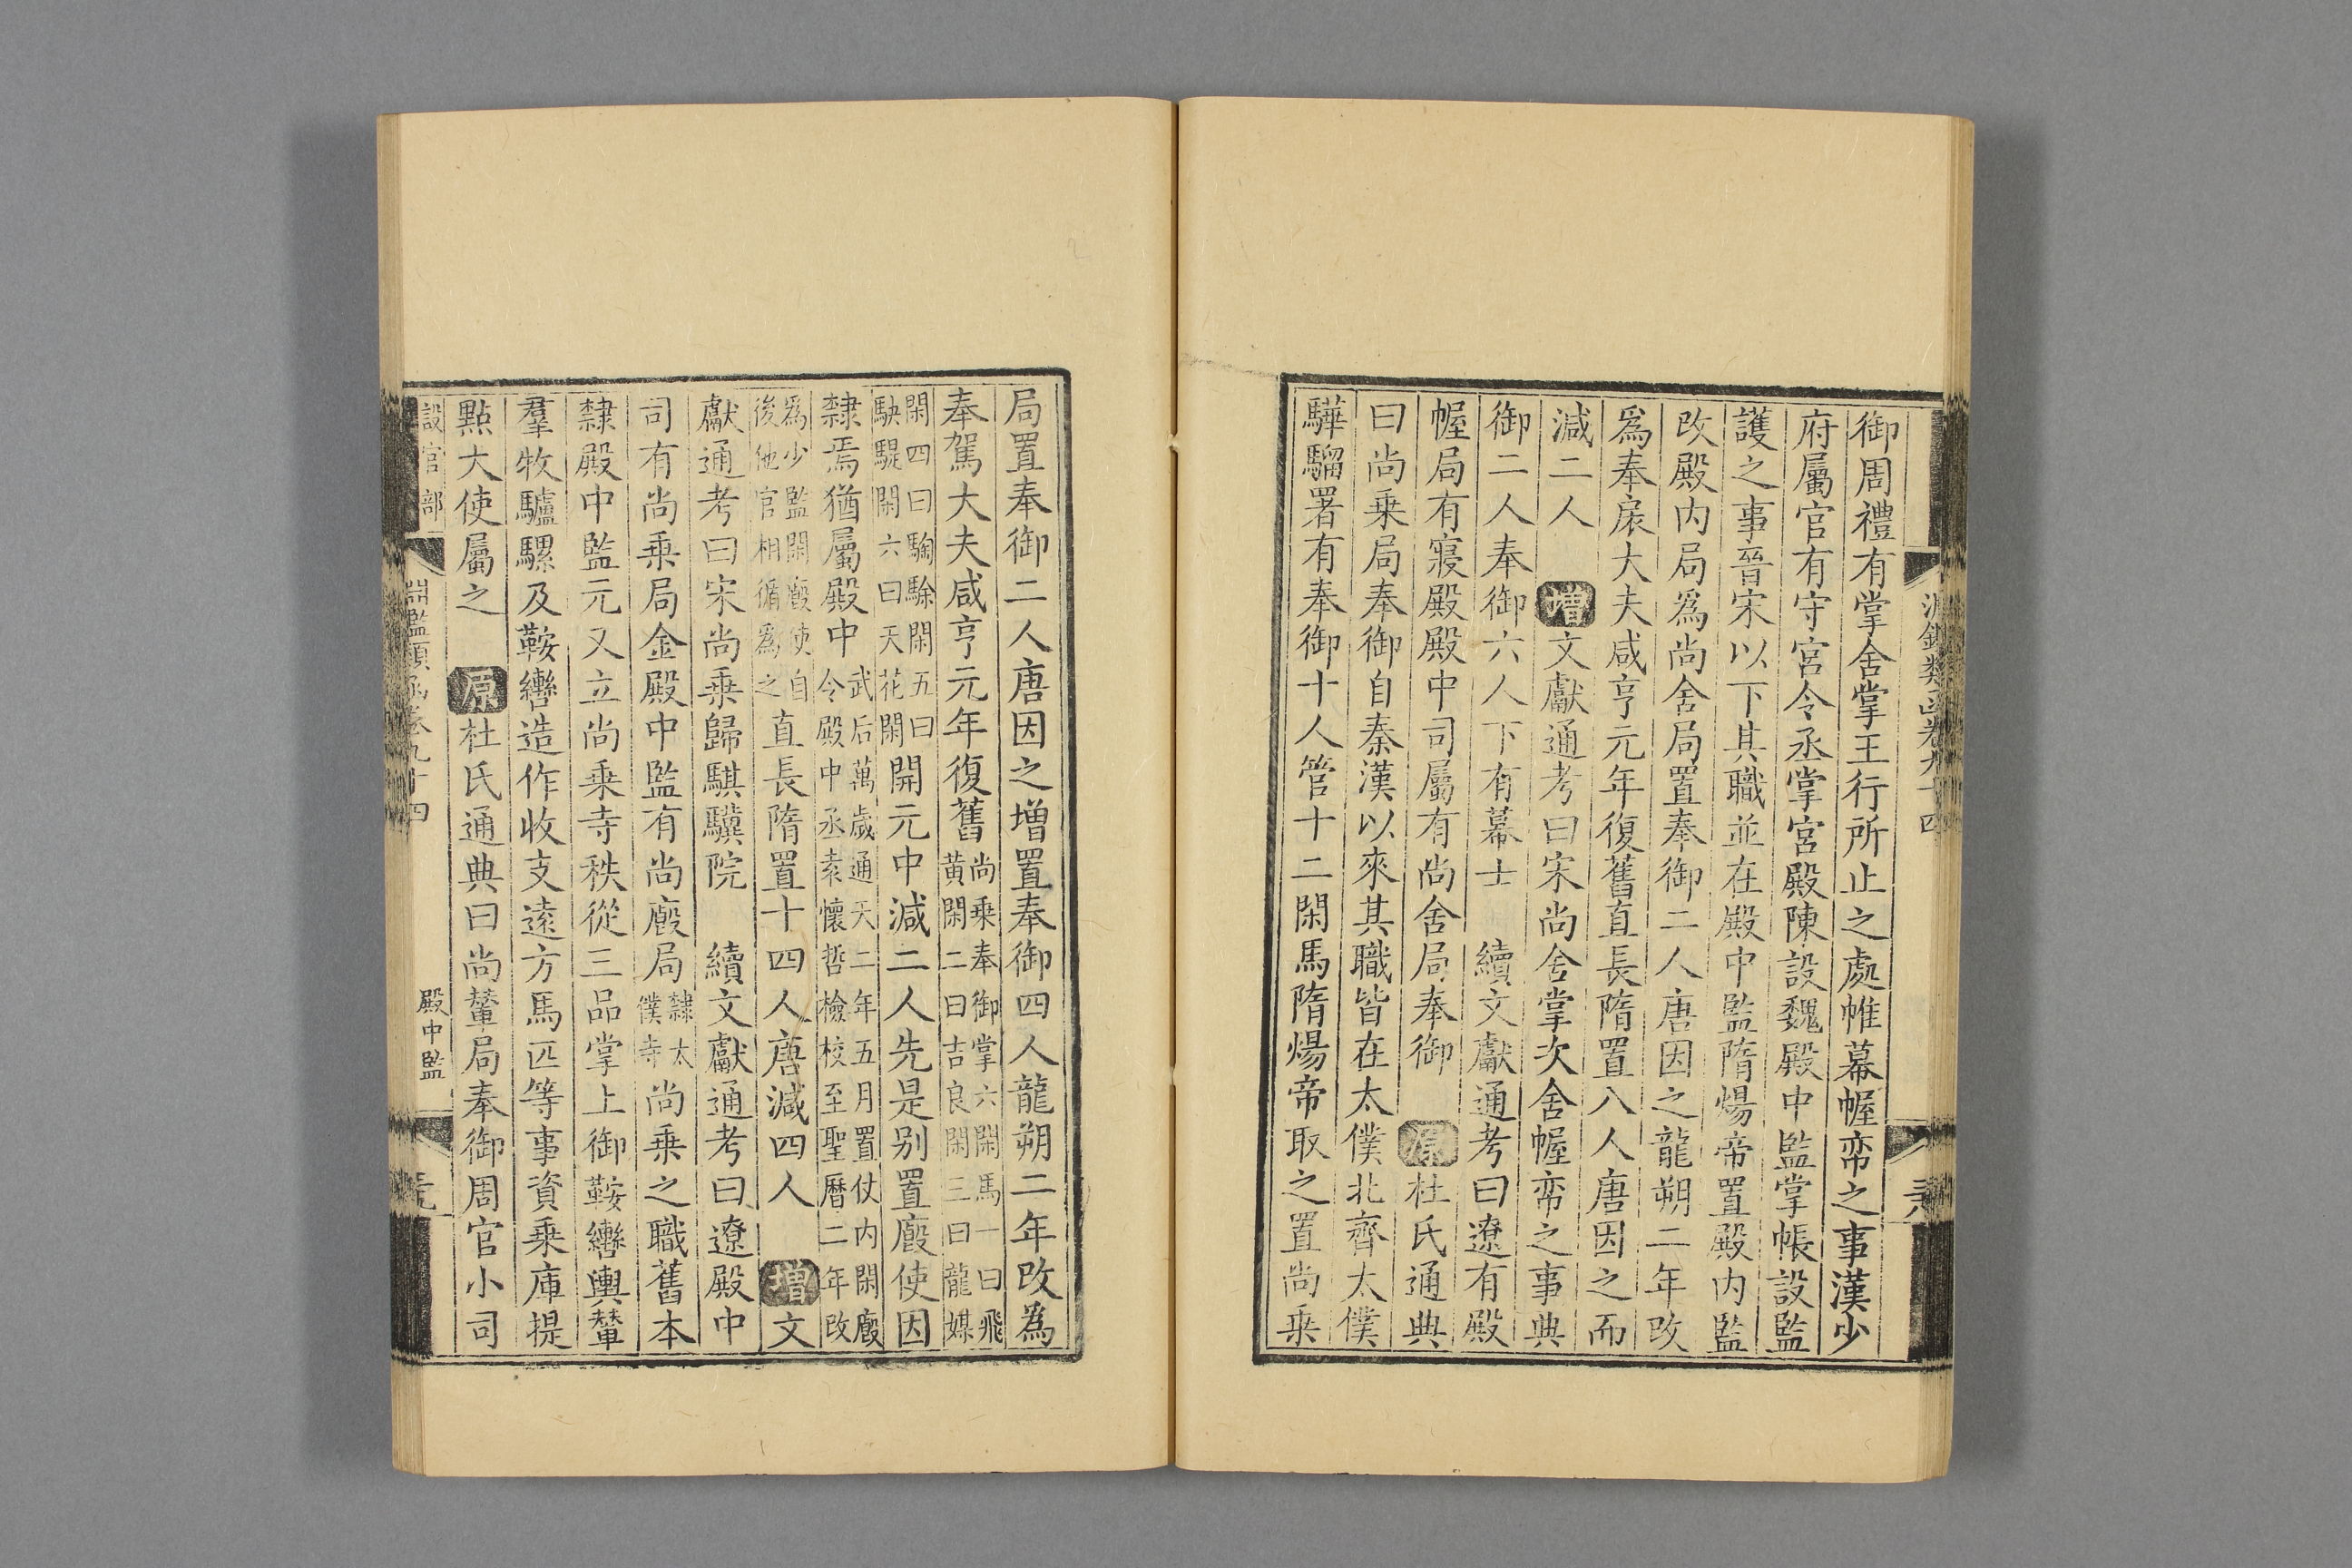 御周禮有掌舍掌王行所止之處帷幕幄帟之事漢少
府屬官有守宮令丞掌宮殿陳設魏殿中監掌帳設監
護之事晉宋以下其職並在殿中監隋煬帝置殿內監
改殿內局爲尚舍局置奉御二人唐因之龍朔二年改
爲奉扆大夫咸亨元年復舊直長隋置八人唐因之而
減二人 增文獻通考曰宋尚舍掌次舍幄帟之事典
御二人奉御六人下有幕士 續文獻通考曰遼有殿
幄局有寢殿殿中司屬有尚舍局奉御 原杜氏通典
曰尚乗局奉御自秦漢以來其職皆在太僕北齊太僕
驊騮署有奉御十人管十二閑馬隋煬帝取之置尚乗
局置奉御二人唐因之增置奉御四人龍朔二年改爲
奉駕大夫咸亨元年復舊尚乗奉御掌六閑馬一曰飛
黃閑二曰吉良閑三曰龍媒
閑四曰騊駼閑五曰
駃騠閑六曰天花閑開元中減二人先是别置廐使因
隸焉猶屬殿中武后萬歲通天二年五月置仗内閑廐
令殿中丞袁懷哲檢校至聖曆二年改
爲少監閑廐使自
後他官相循爲之直長隋置十四人唐減四人 增文
獻通考曰宋尚乗歸騏驥院 續文獻通考曰遼殿中
司有尚乗局金殿中監有尚廐局隸太
僕寺尚乗之職舊本
隸殿中監元又立尚乗寺秩從三品掌上御鞍轡輿輦
羣牧驢騾及鞍轡造作收支遠方馬匹等事資乗庫提
點大使屬之 原杜氏通典曰尚輦局奉御周官小司
設官部 淵鑑類函卷九十四 殿中監